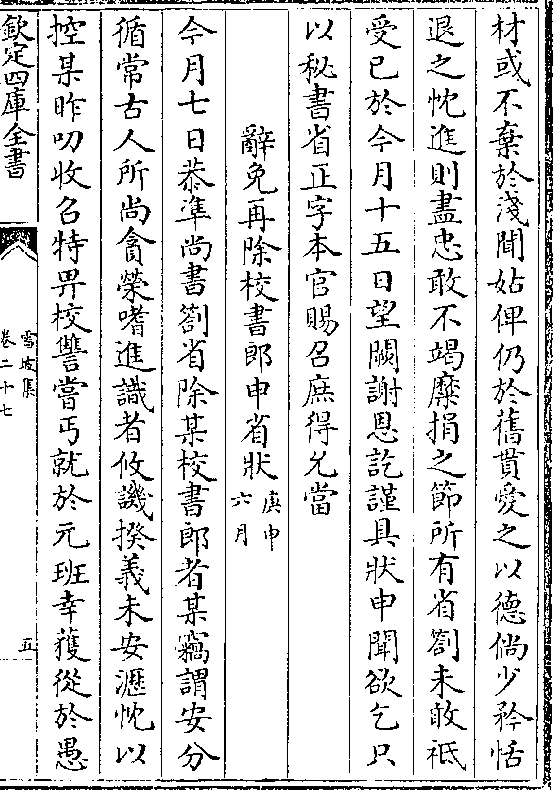 材或不棄於淺聞姑俾仍於舊貫愛之以德倘少矜恬
退之忱進則盡忠敢不竭糜捐之節所有省劄未敢祗
受已於今月十五日望闕謝恩訖謹具狀申聞欲乞只
以秘書省正字本官賜召庶得允當
辭免再除校書郎申省狀庚申六月
今月七日恭準尚書劄省除某校書郎者某竊謂安分
循常古人所尚貪榮嗜進識者攸譏揆義未安瀝忱以
控某昨叨收召特畀校讐嘗丐就於元班幸獲從於愚
欽定四庫全書
雪坡集
卷二十七
五